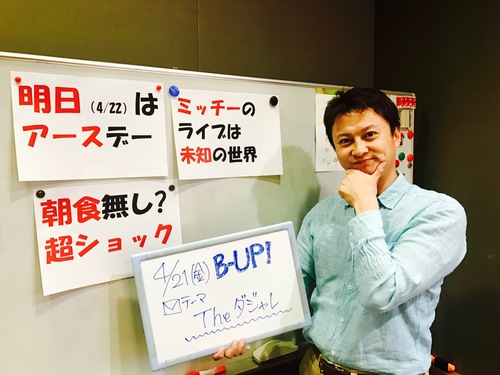 明日(4/22)は
アースデー
ミッチーの
ライブは
未知の世界
朝食無し?
超ショック
4/21(金) B-UP!
テーマ
The ダジャレ